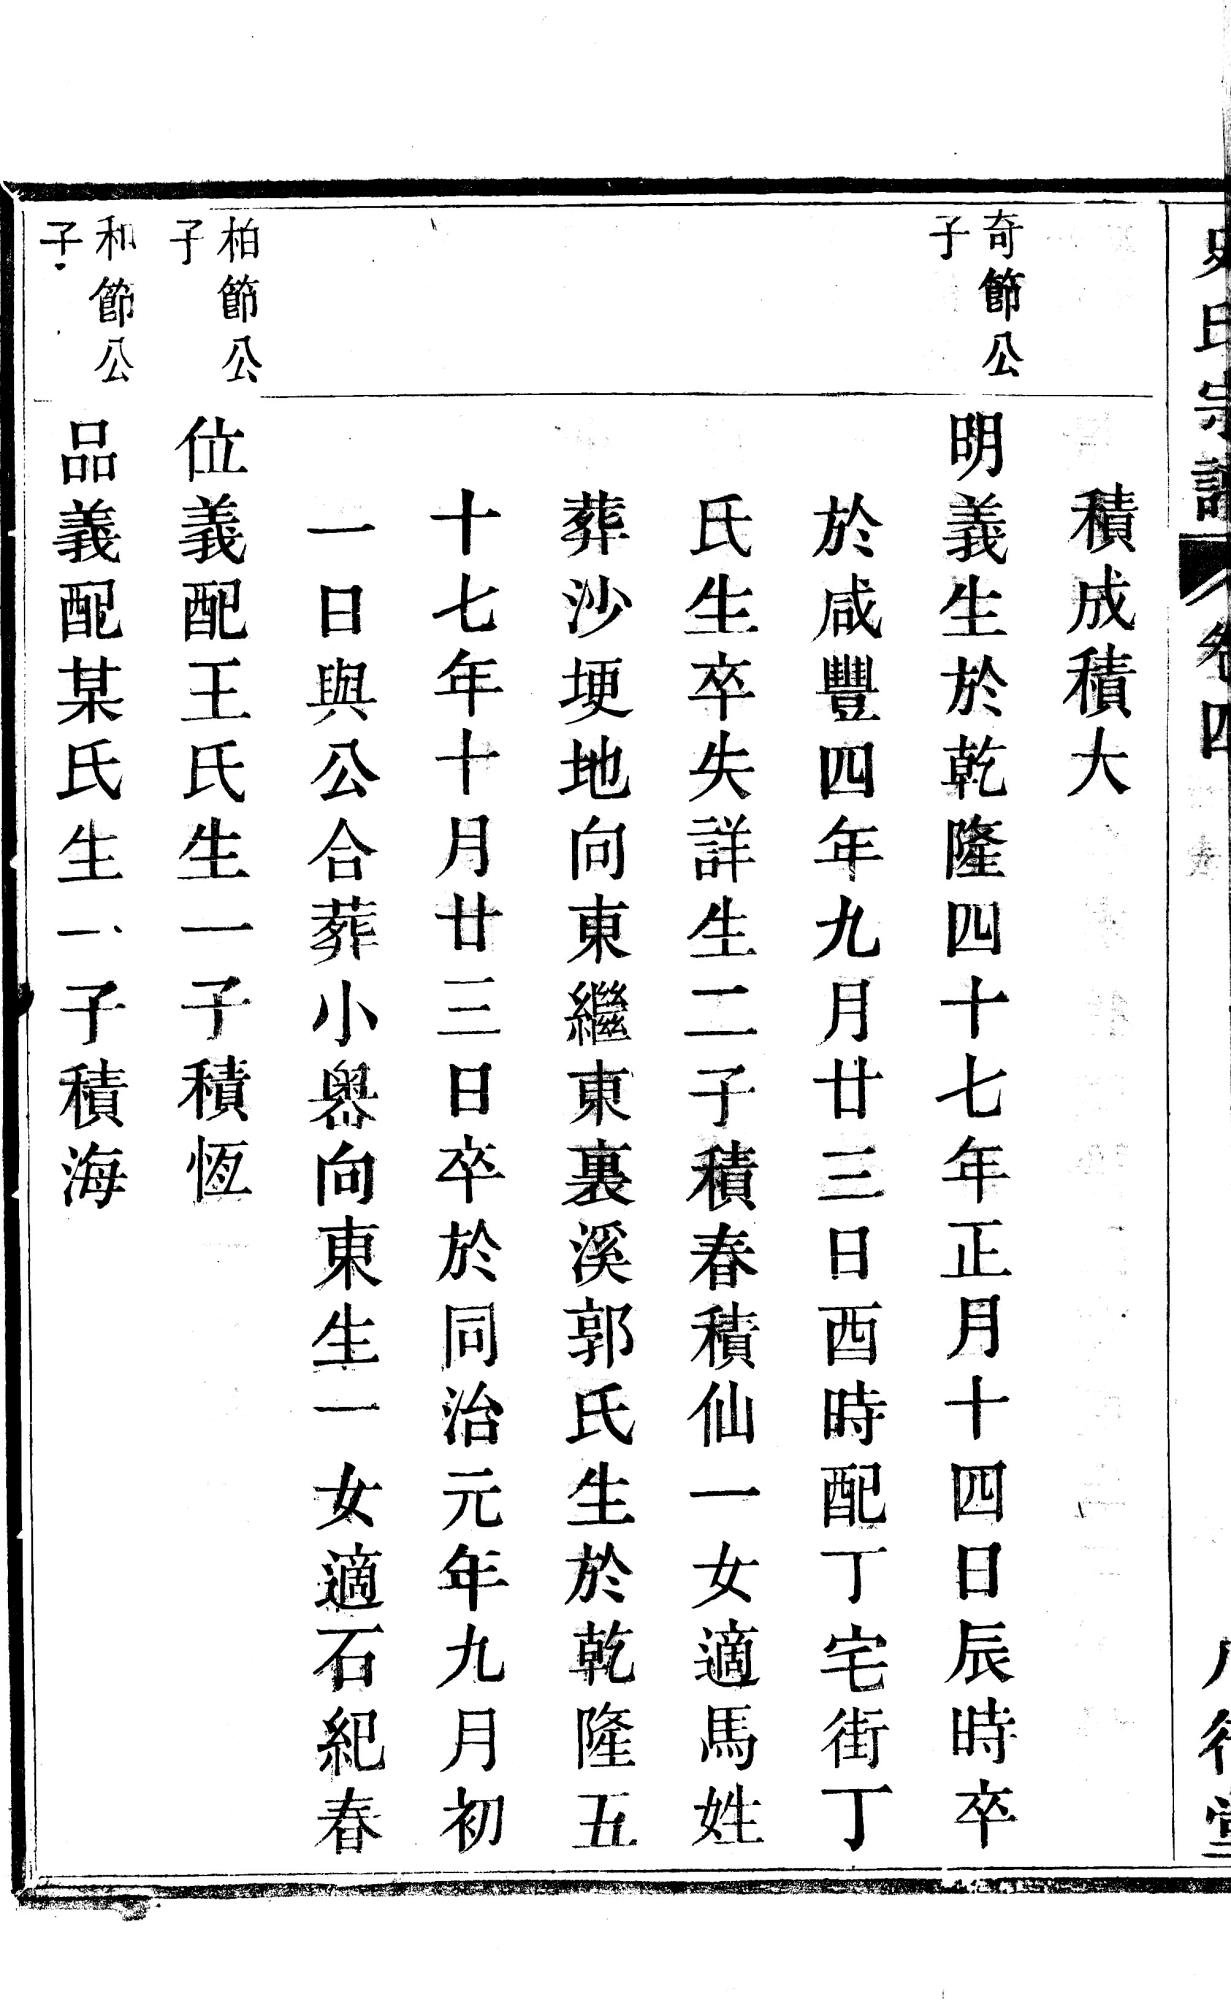 史氏宗譜 卷四 八行堂
積成積大
奇節公子
明義生於乾隆四十七年正月十四日辰時卒
於咸豐四年九月廿三日酉時配丁宅街丁
氏生卒失詳生二子積春積仙一女適馬姓
葬沙埂地向東繼東裏溪郭氏生於乾隆五
十七年十月廿三日卒於同治元年九月初
一日與公合葬小嶴向東生一女適石紀春
柏節公子
位義配王氏生一子積恆
和節公子
品義配某氏生一子積海